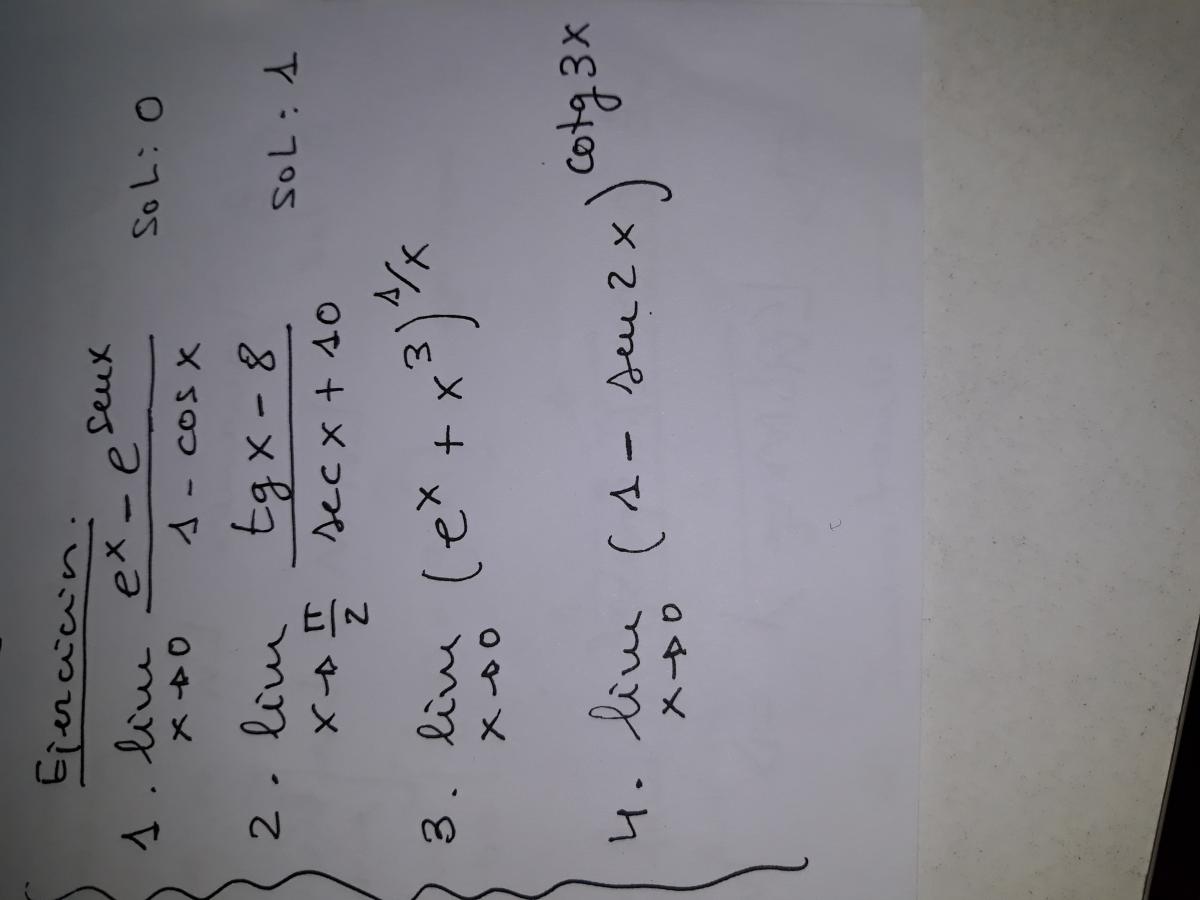 Ejercicios.
1. lim x→0 (e^x - e^senx)/(1 - cos x) SOL: 0
2. lim x→π/2 (tg x - 8)/(sec x + 10) SOL: 1
3. lim x→0 (e^x + x^3)^1/x
4. lim x→0 (1 - sen 2x)^cotg 3x